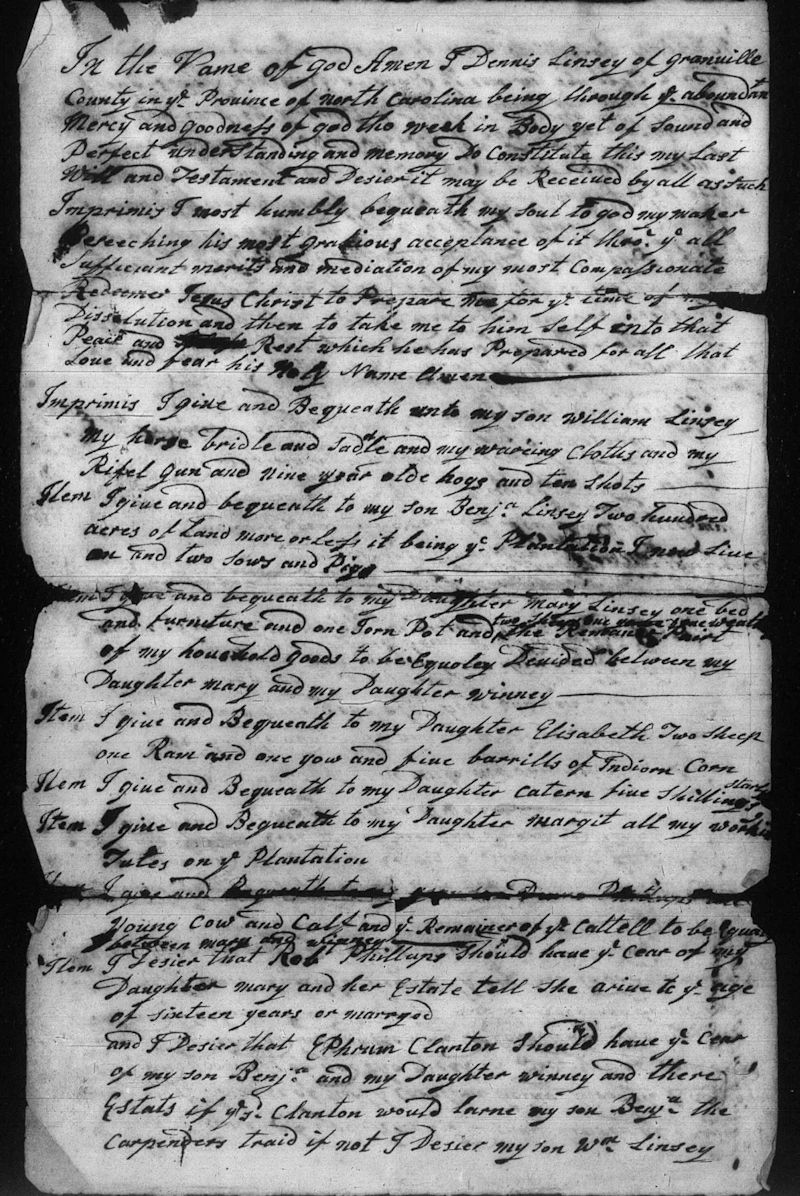 In the Name of god Amen I Dennis Linsey of granville
County in ye. Province of north Carolina being through ye. aboundtan
Mercy and goodness of god tho week in Body yet of Sound and
Perfect understanding and memory Do Constitute this my Last
Will and Testament and Desier it may be Received by all as such
Imprimis I most humbly bequeath my soul to god my maker
Beseeching his most grasious acceptance of it thro. ye. all
Sufficiant merits and mediation of my most Compassionate
Redeemer Jesus Christ to Prepare me for ye. time of my
Dissolution and then to take me to him Self into that
Peace and Rest which he has Prepared for all that
Love and fear his Holy Name Amen
Imprimis I give and Bequeath unto my son William Linsey
my horse bridle and Sadle and my wareing Cloths and my
Rifel gun and nine year olde hogs and ten Shots
Item I give and bequeath to my son Benja. Linsey Two hundred
acres of Land more or less it being ye. Plantation I now Live
on and two sows and Pigs
Item I give and bequeath to my Daughter mary Linsey one bed
and furniture and one Iorn Pot and two Sheep one the Remaine Part
of my household goods to be Equoley Devided between my
Daughter mary and my Daughter winney
Item I give and Bequeath to my Daughter Elisabeth Two Sheep
one Ram and one yow and five barrills of Indiorn Corn
Item I give and Bequeath to my Daughter Catern five Shillings Starling
Item I give and Bequeath to my Daughter margit all my workin
Tules on ye Plantation
I give and Bequeath to my Phillups one
young Cow and Calf and ye. Remainer of ye. Cattell to be Equaly
between mary and winney
Item I Desier that Rob Phillups Should have ye. Cear of my
Daughter mary and her Estate tell she arive to ye. age
of sixteen years or marryed
and I Desier that Ephrum Clanton Should have ye. Cear
of my son Benja. and my Daughter winney and there
Estats if ye. sd. Clanton would larne my son Benja. the
Carpenders traid if not I Desier my son Wm. Linsey